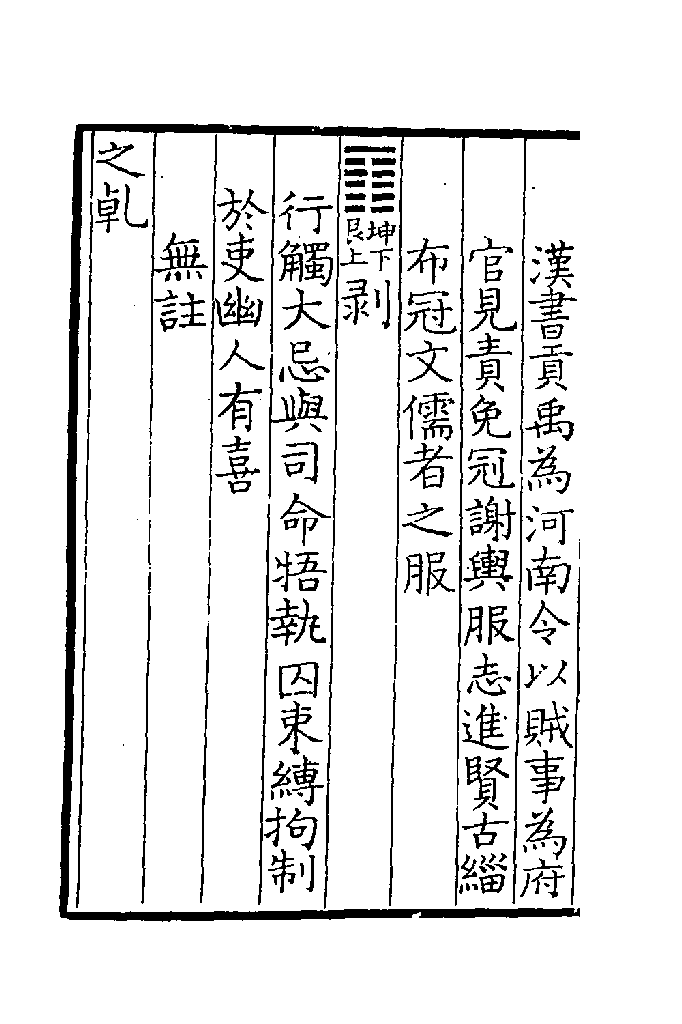 漢書貢禹為河南令以賊事為府
官見責免冠謝輿服志進賢古緇
布冠文儒者之服
䷖坤下艮上剥
行觸大忌與司命牾執囚束縛拘制
於吏幽人有喜
無註
之乹